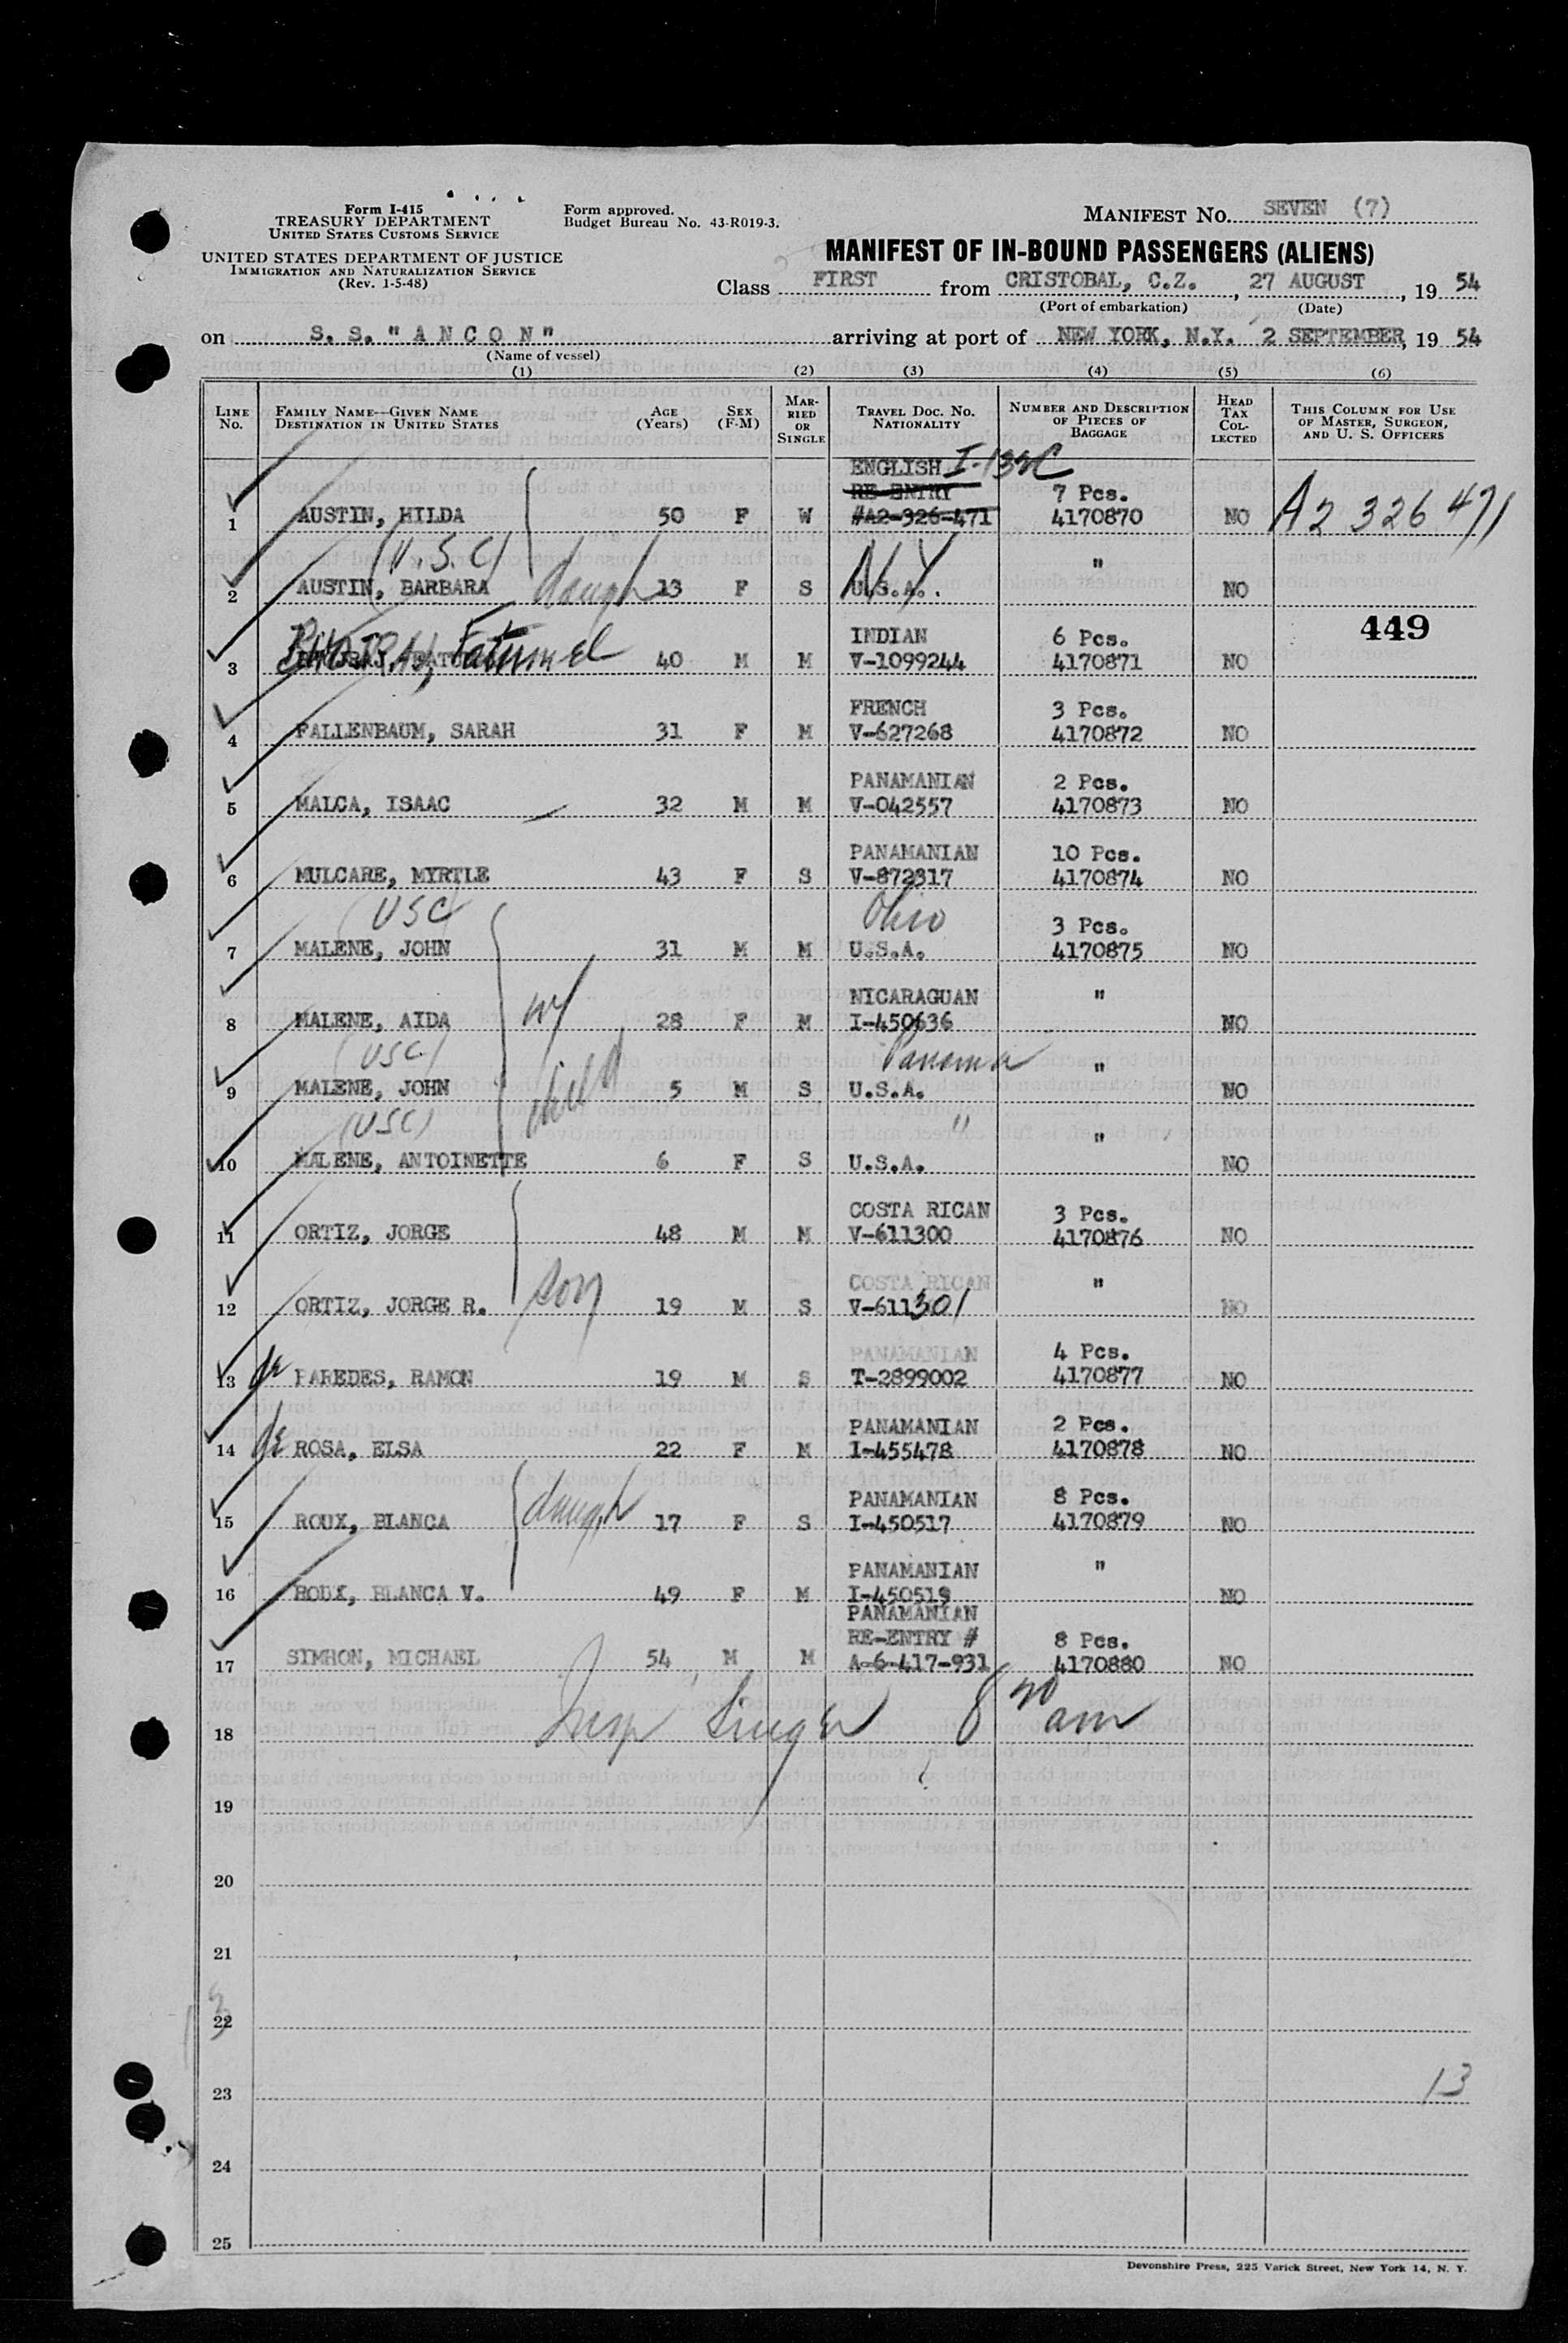 Form I-415
TREASURY DEPARTMENT
UNITED STATES CUSTOMS SERVICE
UNITED STATES DEPARTMENT OF JUSTICE
IMMIGRATION AND NATURALIZATION SERVICE
(Rev. 1-5-48)
Form approved.
Budget Bureau No. 43-R019-3.
MANIFEST NO. SEVEN (7)
MANIFEST OF IN-BOUND PASSENGERS (ALIENS)
Class FIRST from CRISTOBAL, C.Z., 27 AUGUST, 19 54
(Port of embarkation) (Date)
on S. S. "A N C O N" arriving at port of NEW YORK, N.Y. 2 SEPTEMBER, 19 54
(Name of vessel)
(1) (2) (3) (4) (5) (6)
LINE No. FAMILY NAME—GIVEN NAME DESTINATION IN UNITED STATES AGE (Years) SEX (F-M) MARRIED OR SINGLE TRAVEL DOC. NO. NATIONALITY NUMBER AND DESCRIPTION OF PIECES OF BAGGAGE HEAD TAX COLLECTED THIS COLUMN FOR USE OF MASTER, SURGEON, AND U. S. OFFICERS
ENGLISH I-132C
RE-ENTRY 7 Pcs.
1 AUSTIN, HILDA 50 F W #A2-326-471 4170870 NO A2 326 471
(U.S.C) N.Y "
2 AUSTIN, BARBARA daugh 13 F S U.S.A. NO
449
INDIAN 6 Pcs.
3 Fatumal 40 M M V-1099244 4170871 NO
FRENCH 3 Pcs.
4 FALLENBAUM, SARAH 31 F M V-627268 4170872 NO
PANAMANIAN 2 Pcs.
5 MALCA, ISAAC 32 M M V-042557 4170873 NO
PANAMANIAN 10 Pcs.
6 MULCARE, MYRTLE 43 F S V-872317 4170874 NO
(USC) Ohio 3 Pcs.
7 MALENE, JOHN 31 M M U.S.A. 4170875 NO
NICARAGUAN "
8 MALENE, AIDA wf 28 F M I-450636 NO
(USC) Panama "
9 MALENE, JOHN child 5 M S U.S.A. NO
(USC) " "
10 MALENE, ANTOINETTE 6 F S U.S.A. NO
COSTA RICAN 3 Pcs.
11 ORTIZ, JORGE 48 M M V-611300 4170876 NO
COSTA RICAN "
12 ORTIZ, JORGE R. son 19 M S V-611301 NO
PANAMANIAN 4 Pcs.
13 de PAREDES, RAMON 19 M S T-2899002 4170877 NO
PANAMANIAN 2 Pcs.
14 de ROSA, ELSA 22 F M I-455478 4170878 NO
PANAMANIAN 8 Pcs.
15 ROUX, BLANCA daugh 17 F S I-450517 4170879 NO
PANAMANIAN "
16 ROUX, BLANCA V. 49 F M I-450519 NO
PANAMANIAN
RE-ENTRY # 8 Pcs.
17 SIMHON, MICHAEL 54 M M A-6-417-931 4170880 NO
18 Insp Singer am
19
20
21
22
23 13
24
25
Devonshire Press, 225 Varick Street, New York 14, N. Y.